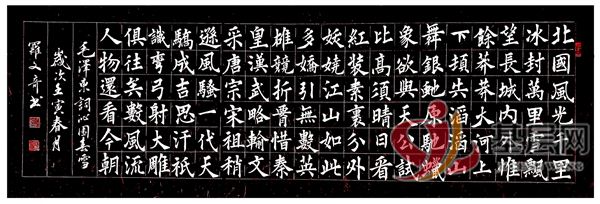 北國風光千里
冰封萬里雪飄
望長城內外惟
餘莽莽大河上
下頓失滔滔山
舞銀蛇原馳蠟
象欲與天公試
比高須晴日看
紅裝素裹分外
妖嬈江山如此
多嬌引無數英
雄競折腰惜秦
皇漢武略輸文
采唐宗宋祖稍
遜風騷一代天
驕成吉思汗祇
識彎弓射大雕
俱往矣數風流
人物還看今朝
毛澤東詞沁園春雪
歲次壬寅春月
羅文奇書